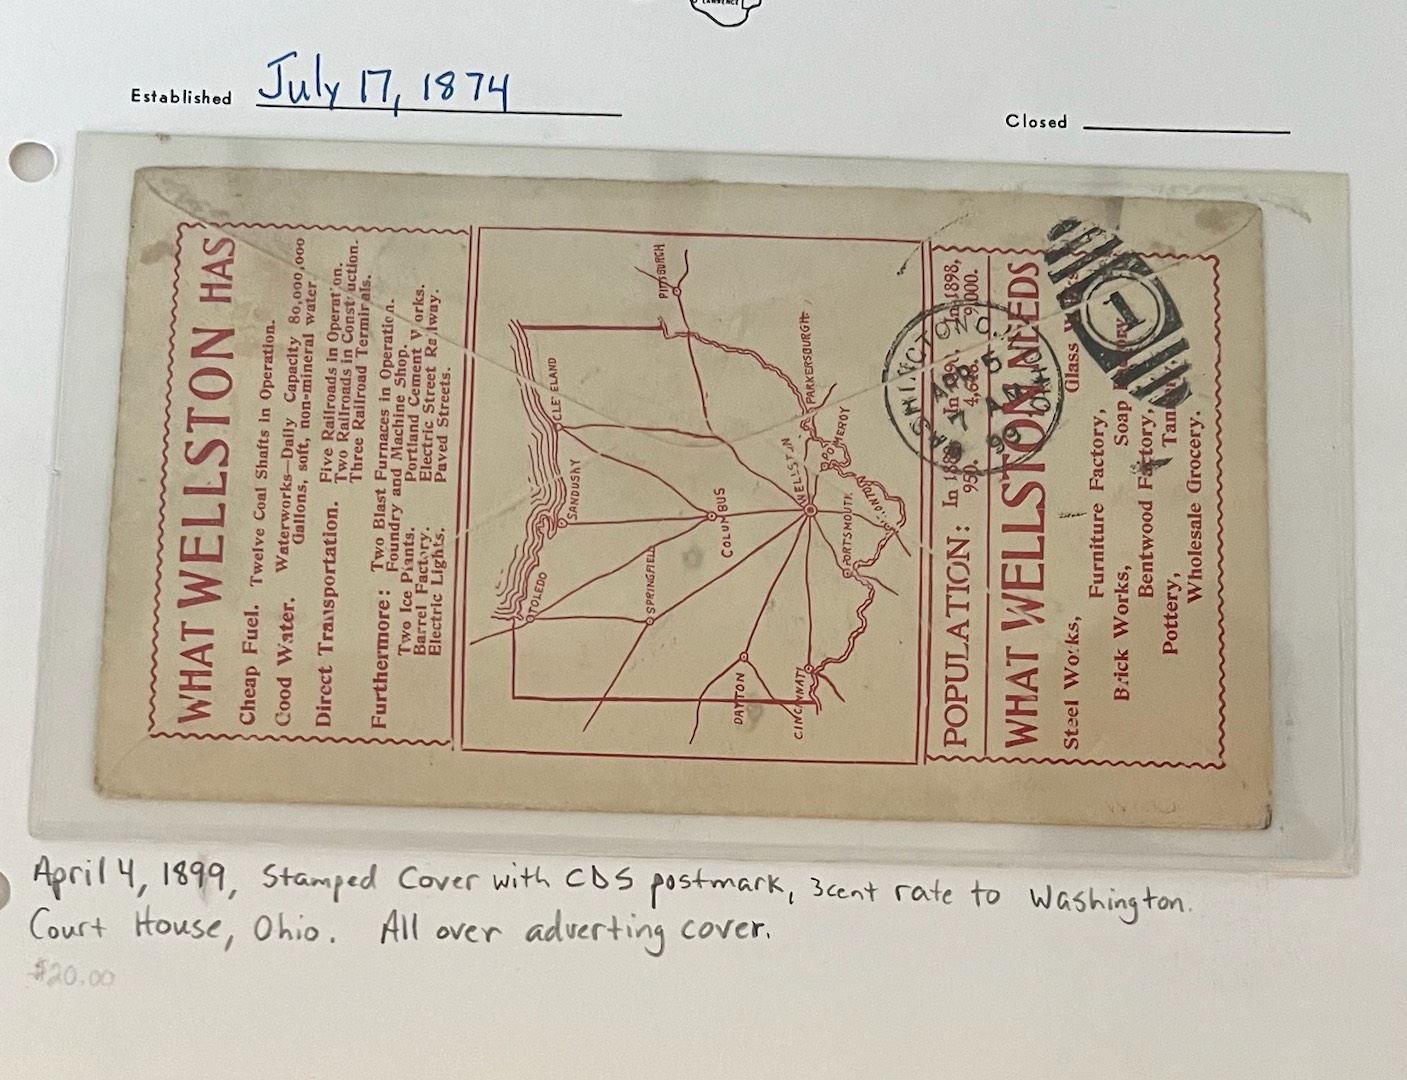 LAWRENCE
Established July 17, 1874
Closed
WHAT WELLSTON HAS
Cheap Fuel. Twelve Coal Shafts in Operation.
Good Water. Waterworks—Daily Capacity 80,000,000
Gallons, soft, non-mineral water.
Direct Transportation. Five Railroads in Operation.
Two Railroads in Construction.
Three Railroad Terminals.
Furthermore: Two Blast Furnaces in Operation.
Foundry and Machine Shop.
Two Ice Plants. Portland Cement Works.
Barrel Factory. Electric Street Railway.
Electric Lights. Paved Streets.
PITTSBURGH
CLEVELAND
SANDUSKY
TOLEDO
COLUMBUS
SPRINGFIELD
DAYTON
CINCINNATI
WELLSTON
PARKERSBURGH
POMEROY
PORTSMOUTH
IRONTON
POPULATION: In 1880, 950. In 4,646. In 1898, 9,000.
WHAT WELLSTON NEEDS
Steel Works, Glass
Furniture Factory,
Brick Works, Soap
Bentwood Factory,
Pottery, Tan
Wholesale Grocery.
WASHINGTON C. H. OHIO
APR 5
7 AM
99
1
April 4, 1899, Stamped Cover with CDS postmark, 3cent rate to Washington
Court House, Ohio. All over adverting cover.
$20.00